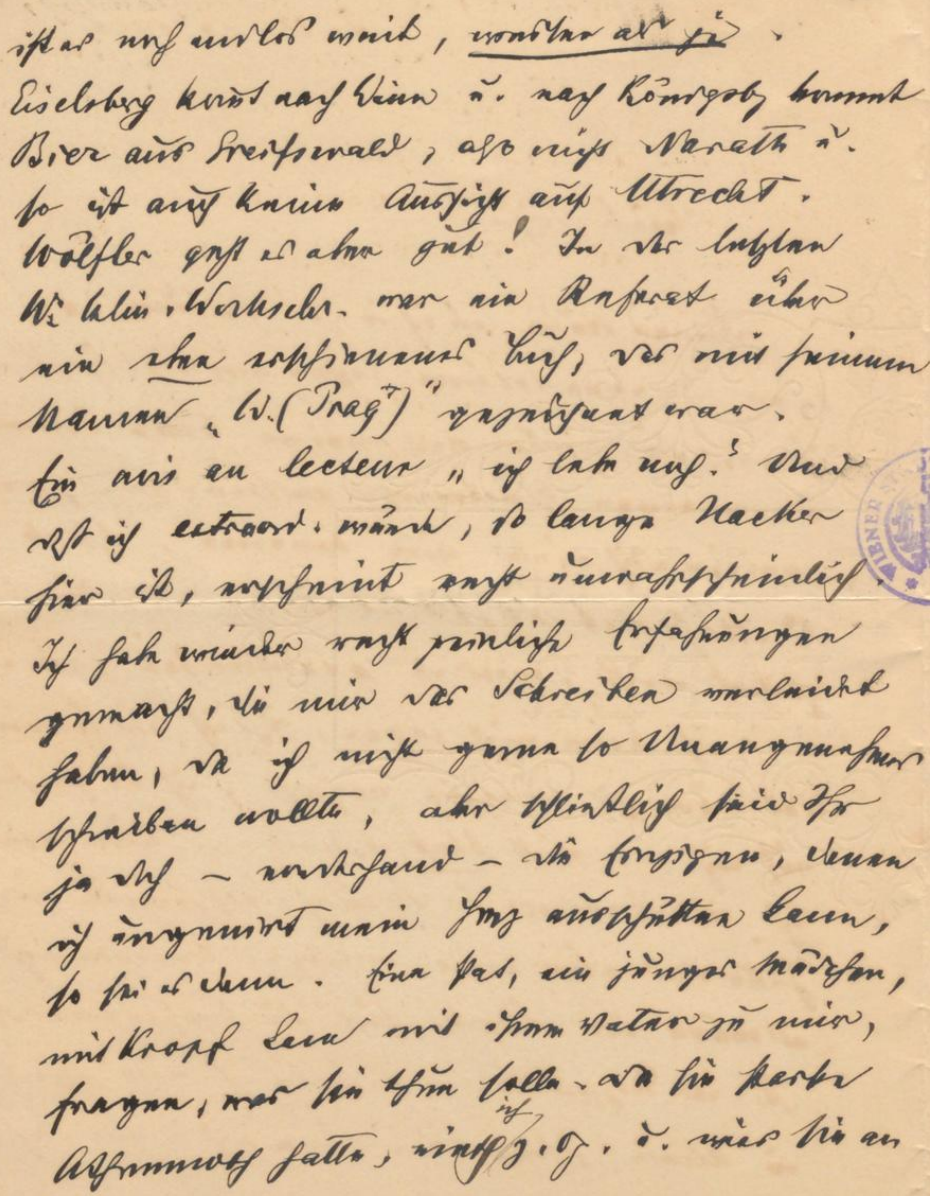 ist es noch endlos weit, weiter als je.
Eiselsberg kommt nach Wien u. nach Königsbg kommt
Bier aus Greifswald, also nicht Narath u.
so ist auch keine Aussicht auf Utrecht.
Wölfler geht es aber gut! In der letzten
Wr klin. Wochschr. war ein Referat über
ein eben erschienenes Buch, das mit seinem
Namen „W. (Prag)" gezeichnet war.
Ein avis au lecteur „ich lebe noch!" Und
daß ich extraord. würde, so lange Hacker
hier ist, erscheint recht unwahrscheinlich.
Ich habe wieder recht peinliche Erfahrungen
gemacht, die mir das Schreiben verleidet
haben, da ich nicht gerne so Unangenehmes
schreiben wollte, aber schließlich seid Ihr
ja doch – vorderhand – die Einzigen, denen
ich ungenirt mein Herz ausschütten kann,
so sei es denn. Eine Pat, ein junges Mädchen,
mit Kropf kam mit ihrem Vater zu mir,
fragen, was sie thun solle. Da sie starke
Athemnoth hatte, rieth ich z. Op. u. wies sie an
WIENER